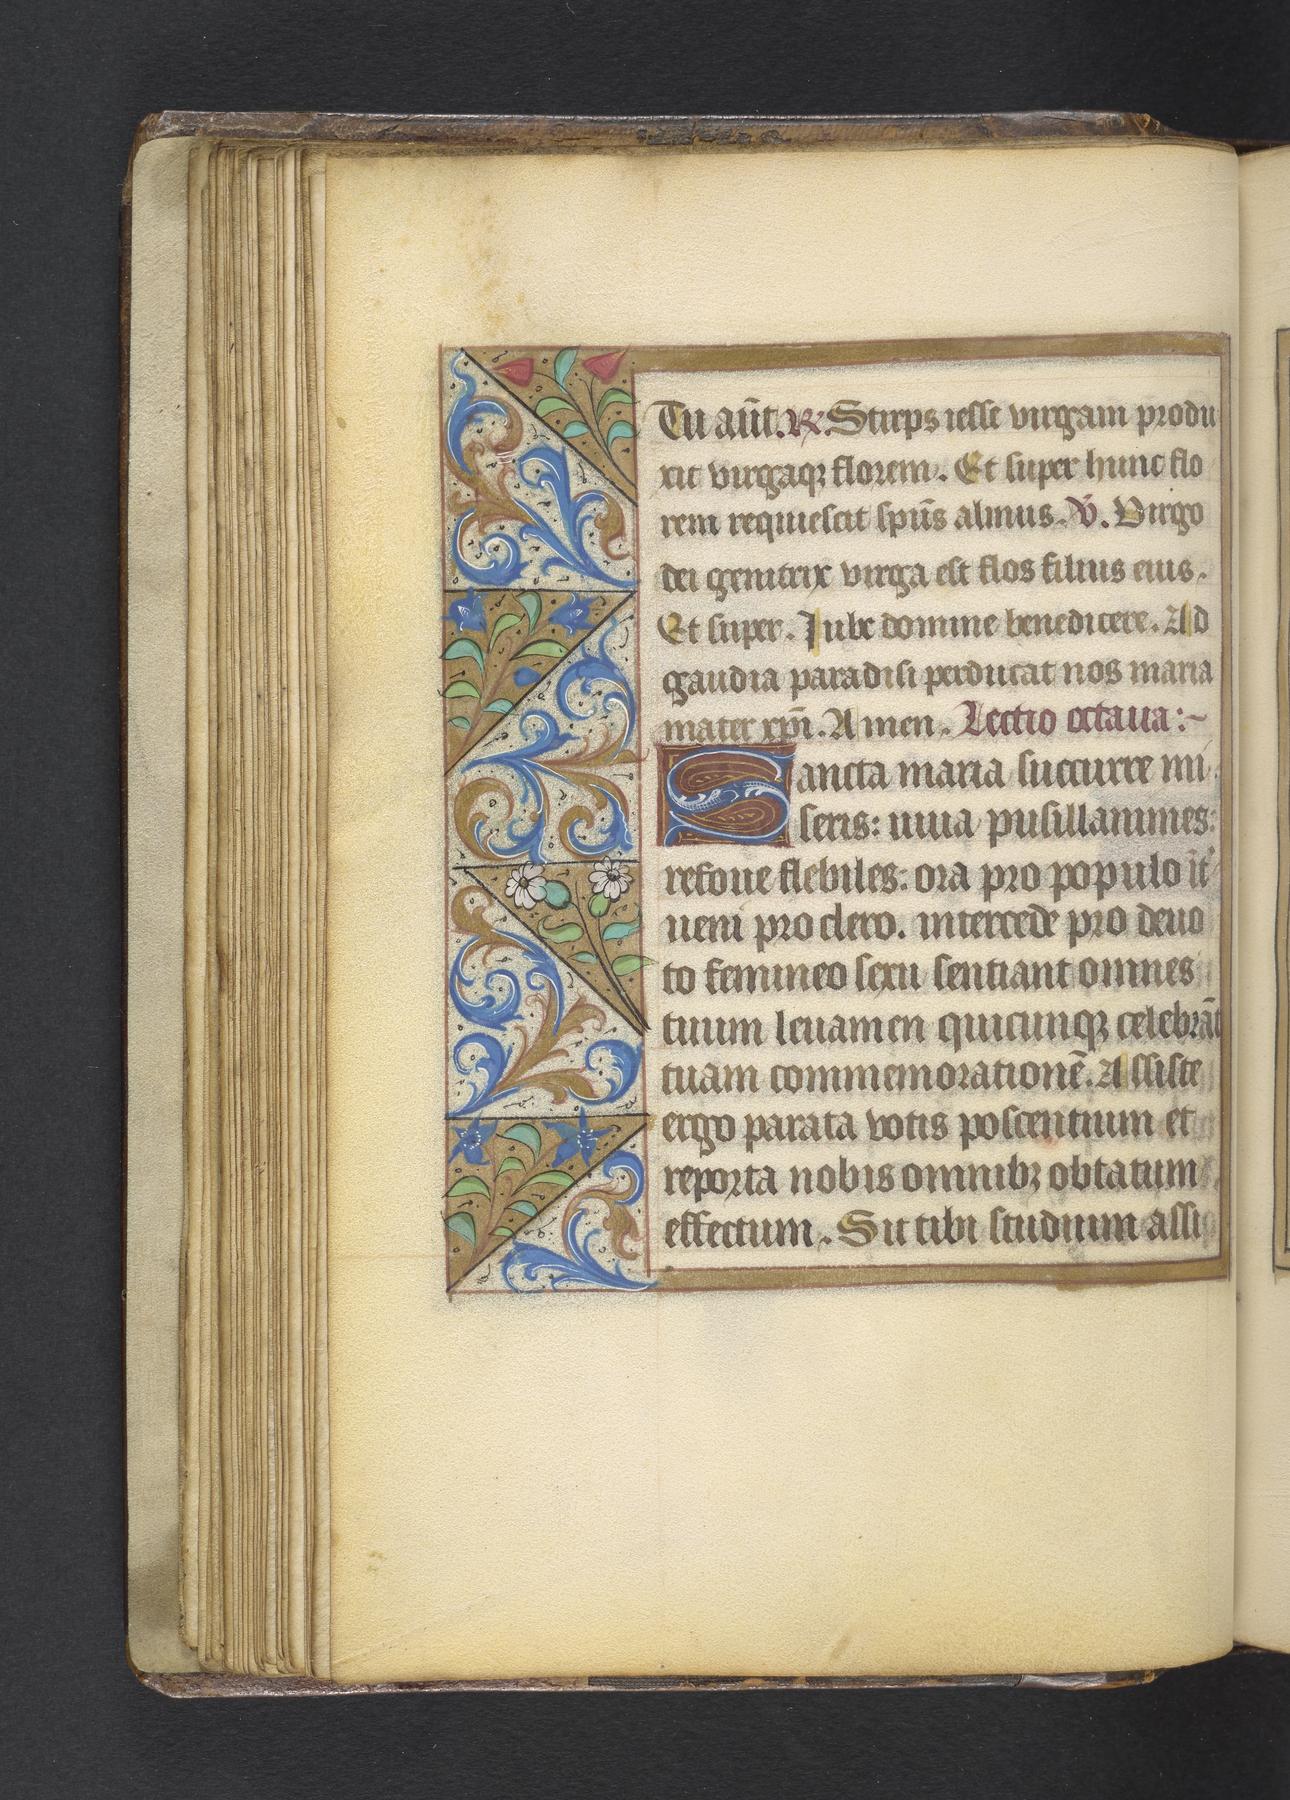 Tu aūt. R. Stirps iesse virgam produ
xit virgaqꝫ florem. Et super hunc flo
rem requiescit sp̄us almus. V̄. Virgo
dei genitrix virga est flos filius eius.
Et super. Iube domine benedicere. Ad
gaudia paradisi perducat nos maria
mater xp̄i. Amen. Lectio octaua:~
Sancta maria succurre mi
seris: iuua pusillanimes:
refoue flebiles: ora pro populo īt
ueni pro clero. intercede pro deuo
to femineo sexu sentiant omnes
tuum leuamen quicunqꝫ celebrāt
tuam commemorationē. Assiste
ergo parata votis poscentium et
reporta nobis omnibꝫ obtatum
effectum. Sit tibi studium assi